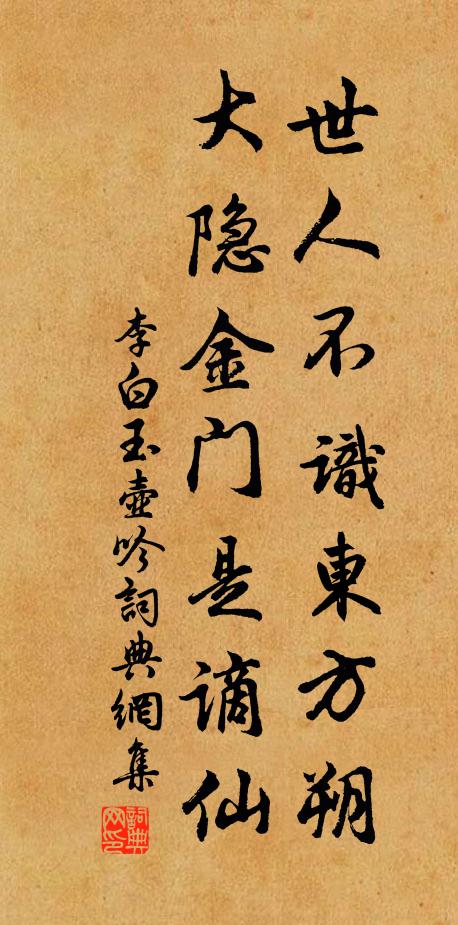 世人不識東方朔
大隐金门是謫仙
李白玉壺吟詞典網集
詞典网印